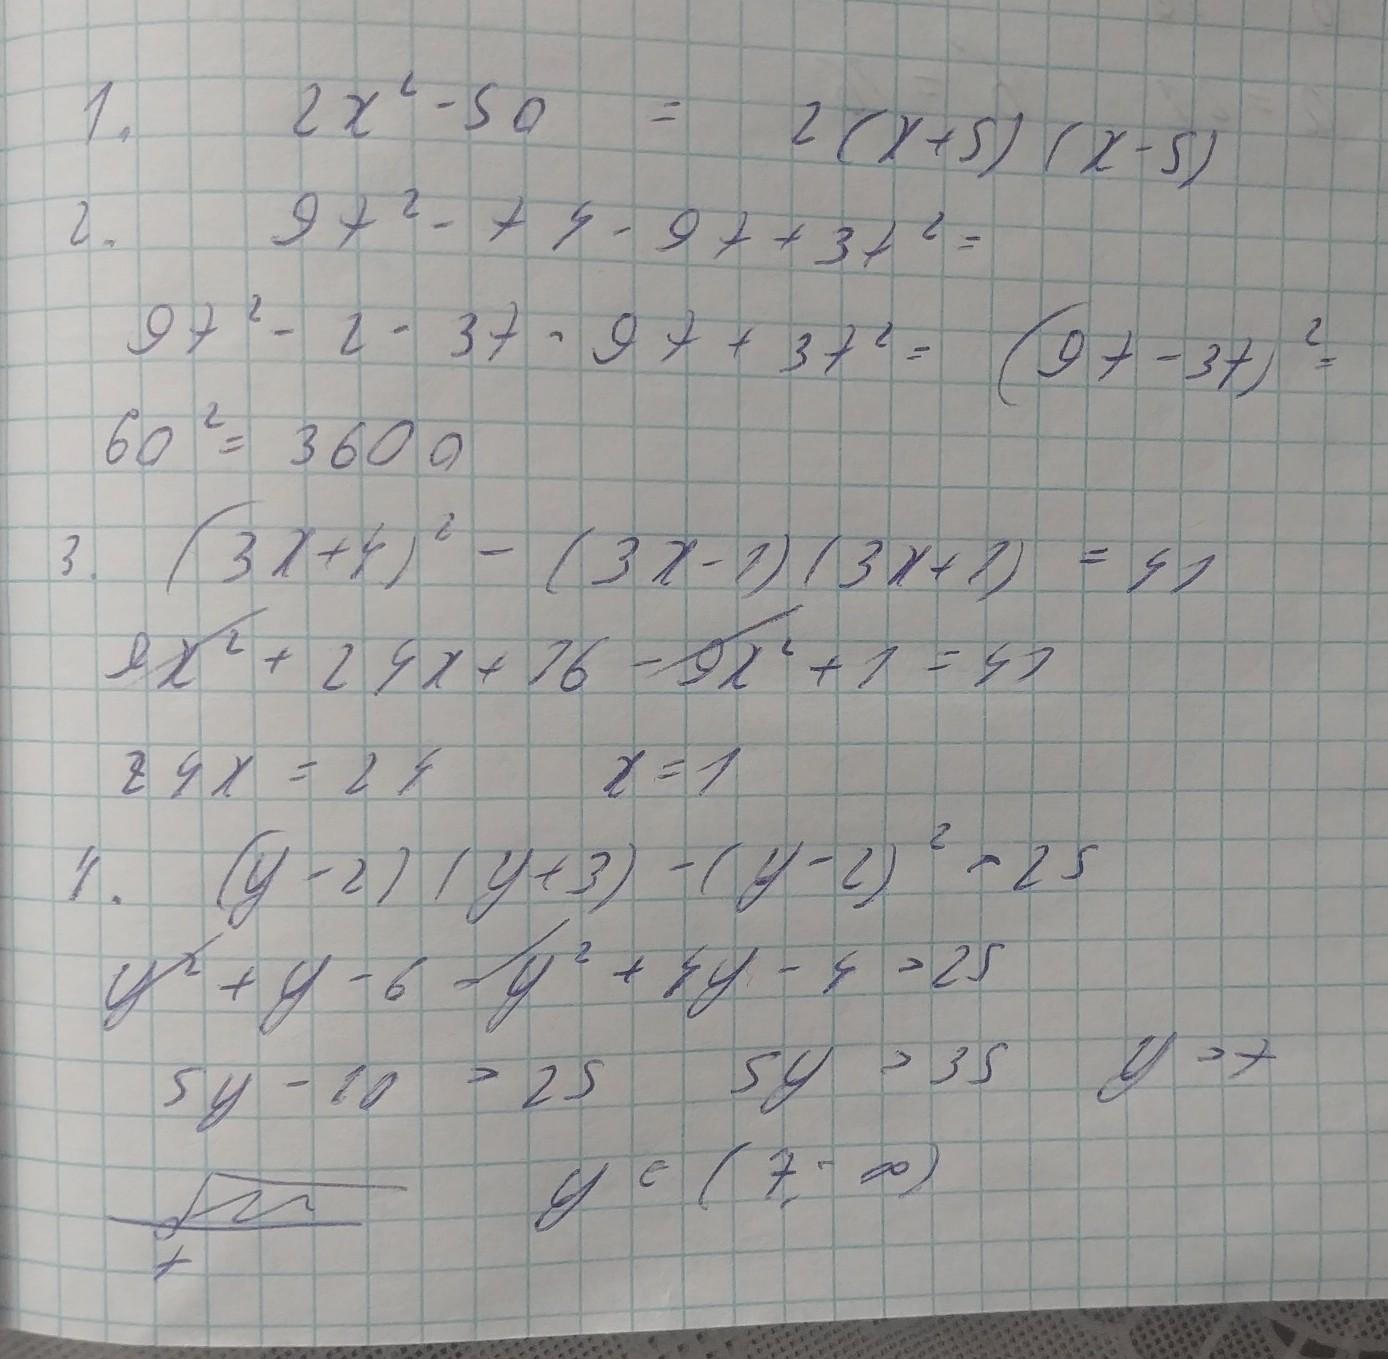 1. 2x² - 50 = 2(x+5)(x-5)
2. 97² - 74 · 97 + 37² =
97² - 2 · 37 · 97 + 37² = (97 - 37)² =
60² = 3600
3. (3x+4)² - (3x-1)(3x+1) = 41
9x² + 24x + 16 - 9x² + 1 = 41
24x = 24 x = 1
4. (y-2)(y+3) - (y-2)² = 25
y² + y - 6 - y² + 4y - 4 = 25
5y - 10 = 25 5y = 35 y = 7
y = (7 - ∞)
7